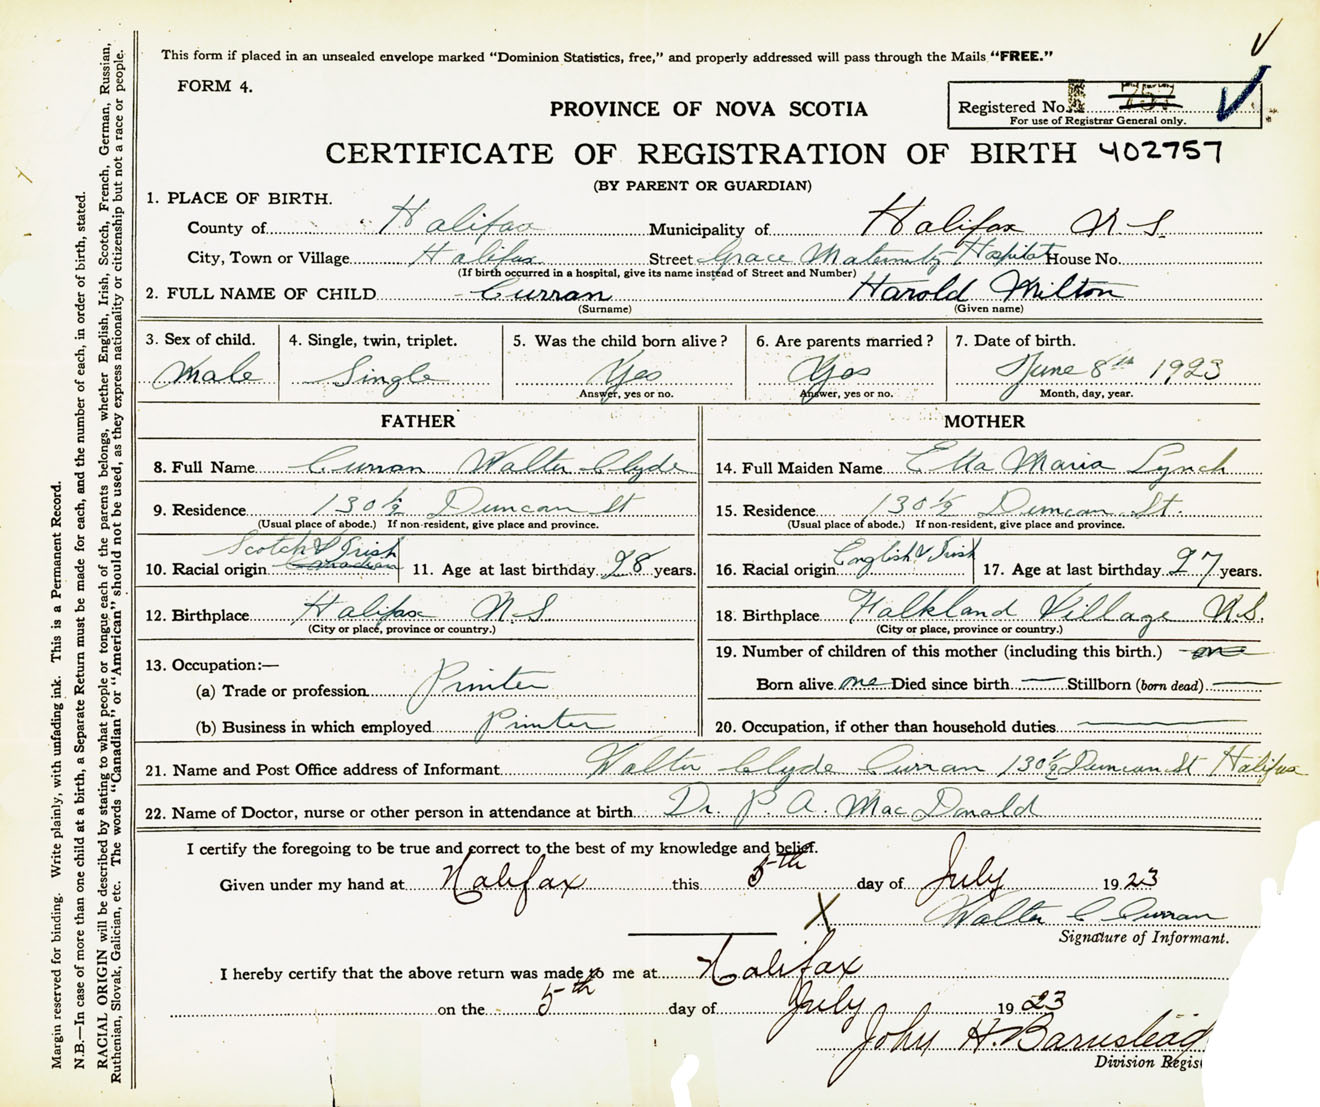 This form if placed in an unsealed envelope marked "Dominion Statistics, free," and properly addressed will pass through the Mails "FREE."
FORM 4.
Registered No.
For use of Registrar General only.
PROVINCE OF NOVA SCOTIA
CERTIFICATE OF REGISTRATION OF BIRTH 402757
(BY PARENT OR GUARDIAN)
1. PLACE OF BIRTH.
County of Halifax Municipality of Halifax N S
City, Town or Village Halifax Street Grace Maternity Hospital House No.
(If birth occurred in a hospital, give its name instead of Street and Number)
2. FULL NAME OF CHILD Curran Harold Milton
(Surname) (Given name)
3. Sex of child. 4. Single, twin, triplet. 5. Was the child born alive? 6. Are parents married? 7. Date of birth.
Male Single Yes Yes June 8th 1923
Answer, yes or no. Answer, yes or no. Month, day, year.
FATHER MOTHER
8. Full Name Curran Walter Clyde 14. Full Maiden Name Etta Maria Lynch
9. Residence 130½ Duncan St 15. Residence 130½ Duncan St.
(Usual place of abode.) If non-resident, give place and province. (Usual place of abode.) If non-resident, give place and province.
Scotch & Irish English & Irish
10. Racial origin Canadian 11. Age at last birthday 28 years. 16. Racial origin 17. Age at last birthday 27 years.
12. Birthplace Halifax N.S. 18. Birthplace Falkland Village N.S.
(City or place, province or country.) (City or place, province or country.)
13. Occupation:— 19. Number of children of this mother (including this birth.) one
(a) Trade or profession Printer Born alive one Died since birth — Stillborn (born dead) —
(b) Business in which employed Printer 20. Occupation, if other than household duties —
21. Name and Post Office address of Informant Walter Clyde Curran 130½ Duncan St Halifax
22. Name of Doctor, nurse or other person in attendance at birth Dr. P. A. MacDonald
I certify the foregoing to be true and correct to the best of my knowledge and belief.
Given under my hand at Halifax this 5th day of July 1923
X Walter C Curran
Signature of Informant.
I hereby certify that the above return was made to me at Halifax
on the 5th day of July 1923
John H. Barnstead
Division
Margin reserved for binding. Write plainly, with unfading ink. This is a Permanent Record.
N.B.—In case of more than one child at a birth, a Separate Return must be made for each, and the number of each, in order of birth, stated.
RACIAL ORIGIN will be described by stating to what people or tongue each of the parents belongs, whether English, Irish, Scotch, French, German, Russian,
Ruthenian, Slovak, Galician, etc. The words "Canadian" or "American" should not be used, as they express nationality or citizenship but not a race or people.